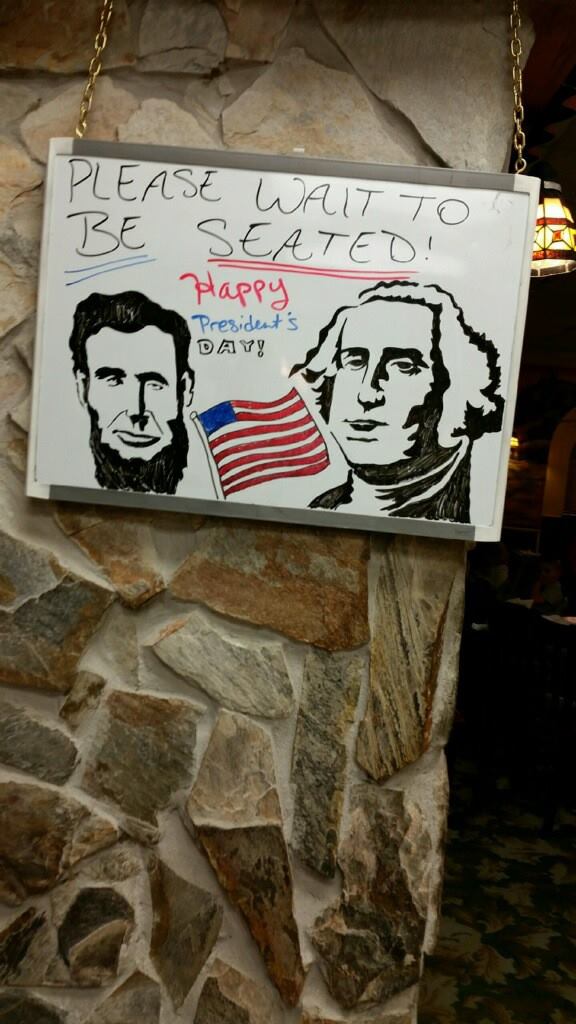 PLEASE WAIT TO
BE SEATED!
Happy
President's
DAY!